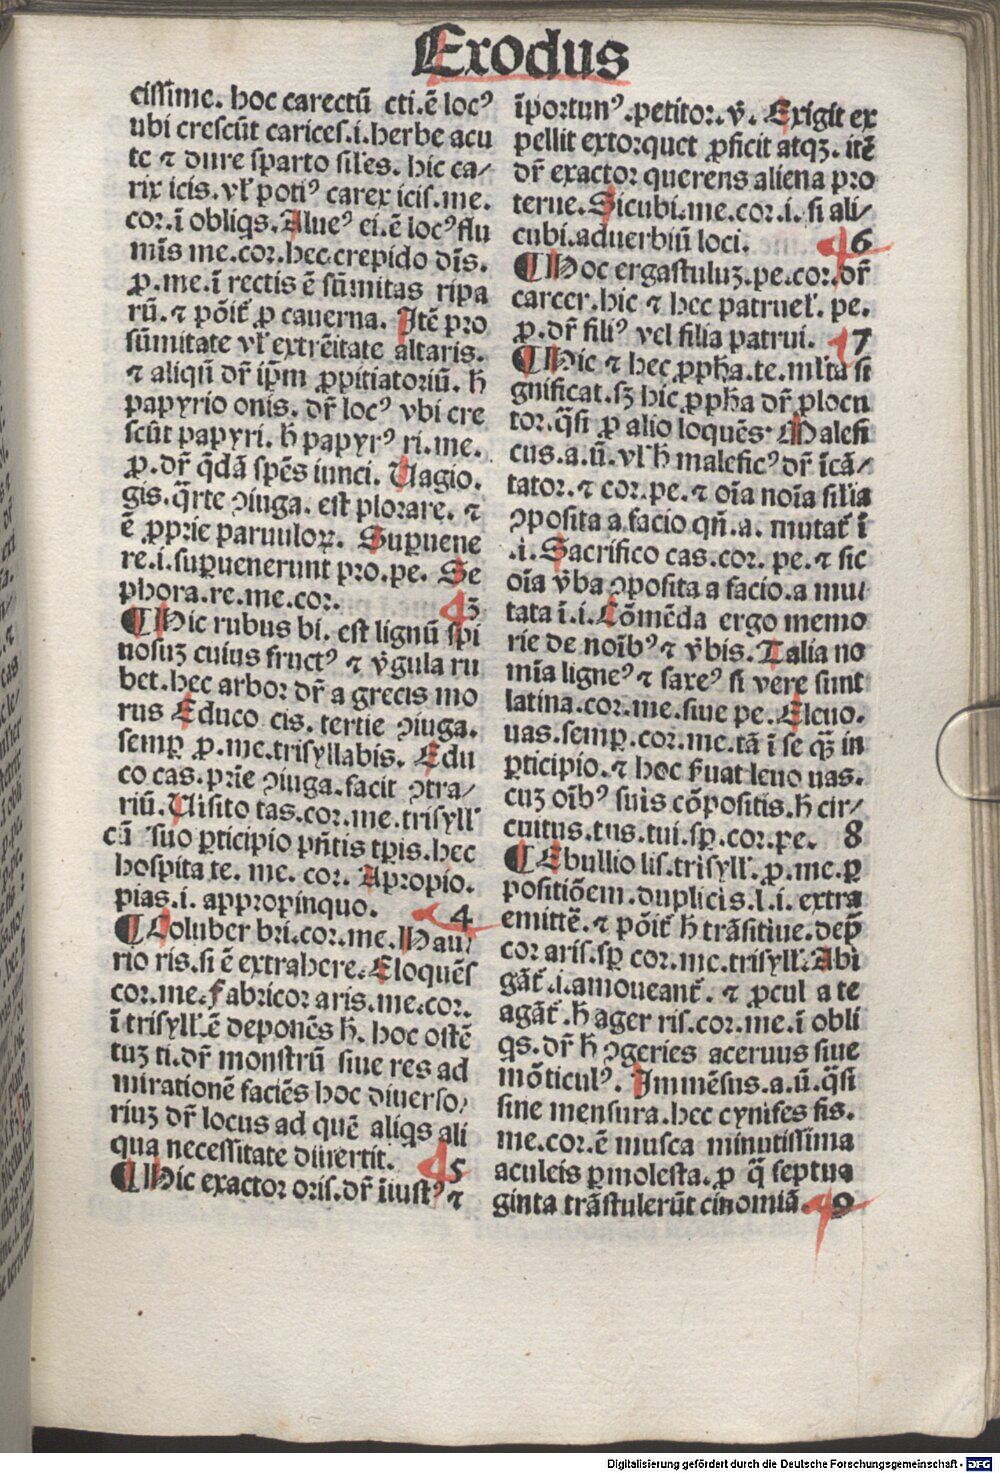 Exodus
cissime. hoc carectū cti.ē locꝰ
ubi crescūt carices.i.herbe acu
te ⁊ dure sparto siles. hic ca/
rix icis. vl̓ potiꝰ carex icis.me.
cor.ī obliqs. Alueꝰ ei.ē locꝰ flu
mīs me.cor.hec crepido dīs.
ꝓ.me.ī rectis ē sūmitas ripa
rū.⁊ pōit̉ ꝓ cauerna. Itē pro
sūmitate vl̓ extrēitate altaris.
⁊ aliqn̄ dr̄ ip̄m ꝓpitiatoriū. h̄
papyrio onis. dr̄ locꝰ vbi cre
scūt papyri. h̄ papyrꝰ ri.me.
ꝓ.dr̄ q̄dā sp̄es iunci. Uagio.
gis.q̄rte ꝯiuga. est plorare. ⁊
ē ꝓprie paruuloꝝ. Supuene
re.i.supuenerunt pro.pe. Se
phora.re.me.cor. 3
¶ Hic rubus bi. est lignū spi
nosuꝫ cuius fructꝰ ⁊ v̓gula ru
bet.hec arbor dr̄ a grecis mo
rus Educo cis. tertie ꝯiuga.
semꝑ ꝓ.me.trisyllabis. Edu
co cas.prīe ꝯiuga.facit ꝯtra/
riū. Uisito tas.cor.me.trisyll̓
cū suo ꝑticipio pn̄tis tꝑis.hec
hospita te. me. cor. Apropio.
pias.i. appropinquo. 4
¶ Coluber bri.cor.me. Hau/
rio ris.si ē extrahere. Eloquēs
cor.me. fabricor aris.me.cor.
ī trisyll̓.ē deponēs h̄. hoc ostē
tuꝫ ti.dr̄ monstrū siue res ad
mirationē faciēs hoc diuerso/
riuꝫ dr̄ locus ad quē aliqs ali
qua necessitate diuertit. 5
¶ Hic exactor oris.dr̄ īiustꝰ ⁊
īportunꝰ.petitor.v̓. Exigit ex
pellit extorquet ꝓficit atqꝫ. itē
dr̄ exactor querens aliena pro
terue. Sicubi.me.cor.i. si ali/
cubi.aduerbiū loci. 6
¶ Hoc ergastuluꝫ.pe.cor.dr̄
carcer.hic ⁊ hec patruel̓. pe.
ꝓ.dr̄ filiꝰ vel filia patrui. 7
¶ Hic ⁊ hec ꝓph̄a.te.ml̓ta si
gnificat.sꝫ hic ꝓph̄a dr̄ ꝓlocu
tor.q̄si ꝓ alio loquēs. Malefi
cus.a.ū.vl̓ h̄ maleficꝰ dr̄ īcā/
tator.⁊ cor.pe.⁊ oīa noīa silīa
ꝯposita a facio qn̄.a. mutat̉ ī
.i. Sacrifico cas.cor. pe.⁊ sic
oīa v̓ba ꝯposita a facio.a mu/
tata ī.i. Cōmēda ergo memo
rie de noībꝰ ⁊ v̓bis. Talia no
mīa ligneꝰ ⁊ saxeꝰ si vere sunt
latina.cor.me.siue pe. Eleuo.
uas.semꝑ.cor.me.tā ī se qꝫ̄ in
ꝑticipio.⁊ hoc ẜuat leuo uas.
cuꝫ oībꝰ suis cōpositis.h̄ cir/
cuitus.tus.tui.sꝑ.cor.pe. 8
¶ Ebullio lis.trisyll̓.ꝓ.me.ꝑ
positiōem.duplicis.l.i. extra
emittē.⁊ pōit̉ h̄ trāsitiue.dep̄
cor aris.sꝑ cor.me.trisyll̓. Abi
gāt̉.i.amoueant̉. ⁊ ꝓcul a te
agāt̉.h̄ ager ris.cor.me.ī obli
qs.dr̄ h̄ ꝯgeries aceruus siue
mōticulꝰ. Immēsus.a.ū.q̄si
sine mensura.hec cynifes fis.
me.cor.ē musca minutissima
aculeis ꝑmolesta.ꝓ q̄ septua
ginta trāstulerūt cinomiā. 9
Digitalisierung gefördert durch die Deutsche Forschungsgemeinschaft - DFG